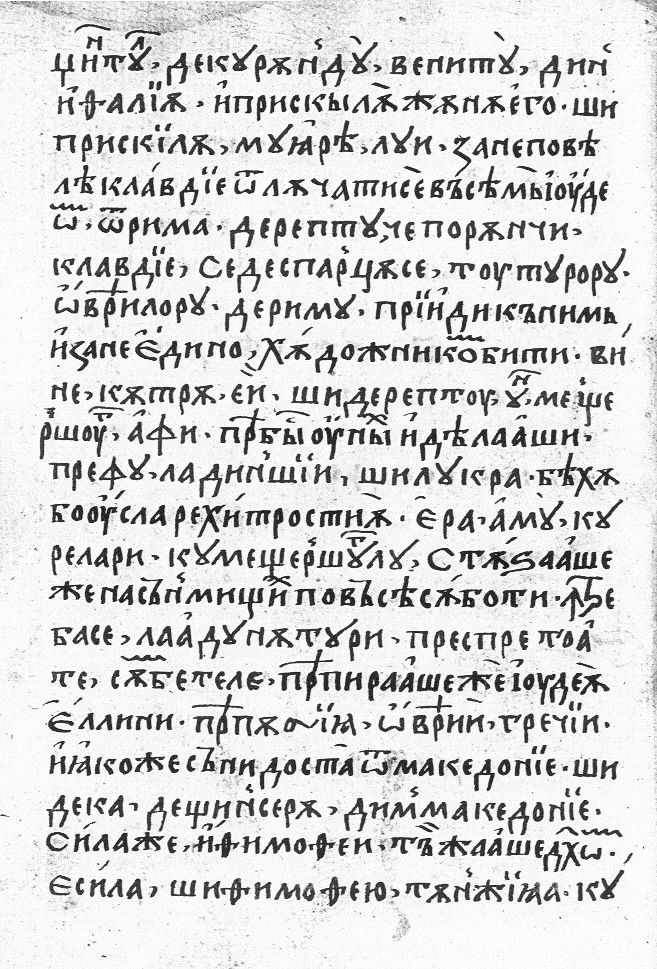 щи́нтꙋл, декурѫн҆дꙋ̀, венитꙋ̀, дин҆
и҆ѳалїѧ · и҆прискыл̀ѫжѫнѫе҆го · ши
прискї́лѫ, мꙋꙗ҆рѣ, лꙋи · занеповѣ
лѣкла́вдїеѿлѫчатисевъ́сѣмъ̀і҆оу҆де
ѡм, ѿрима · дерептꙋ, чепорѫнчи,
клавдїе, Седеспар҆цѫсе, тоутꙋрорꙋ ·
ѡ҆врилорꙋ · деримꙋ · прїи҆дикънимь,
и҆зане є҆дино, хѫ́дожникѡмбити · ви́
не, кѫтрѫ, е҆и · шидерептоу, ꙋ҆н, меще
р҆шоу́т, а҆фи · прѣбы́оу҆ныхи҆дѣлаа҆ши,
префꙋ, ладин҆шїи, шилꙋкра · бѣхѫ
бооу҆сларехи́тростиѫ̀ · є҆ра, а҆мꙋ̀, кꙋ
релари · кꙋмещер҆шꙋтлꙋ, Стѧ́ѕаа҆ше
женасън҆мищи́хповъ́сѣсѫ́боти · ꙟтѕе
басе, лаа҆дꙋнѫтꙋри, преспре тоа҆
те, сѫ́мбетеле, прпираа҆шежеі҆оудѐѫ
є҆ллини · прпѫнїꙗ, ѡ҆врїи, гречїи ·
и҆ꙗкожесънидостàѿмакедонїе · ши
дека, дещин҆серѫ, дим҆македонїе ·
Си́лаже, и҆ѳимоѳеи · тъ̀жаа҆шедхѡм ·,
еси́ла, шиѳимоѳею, тѫн҆жїꙗа · кꙋ